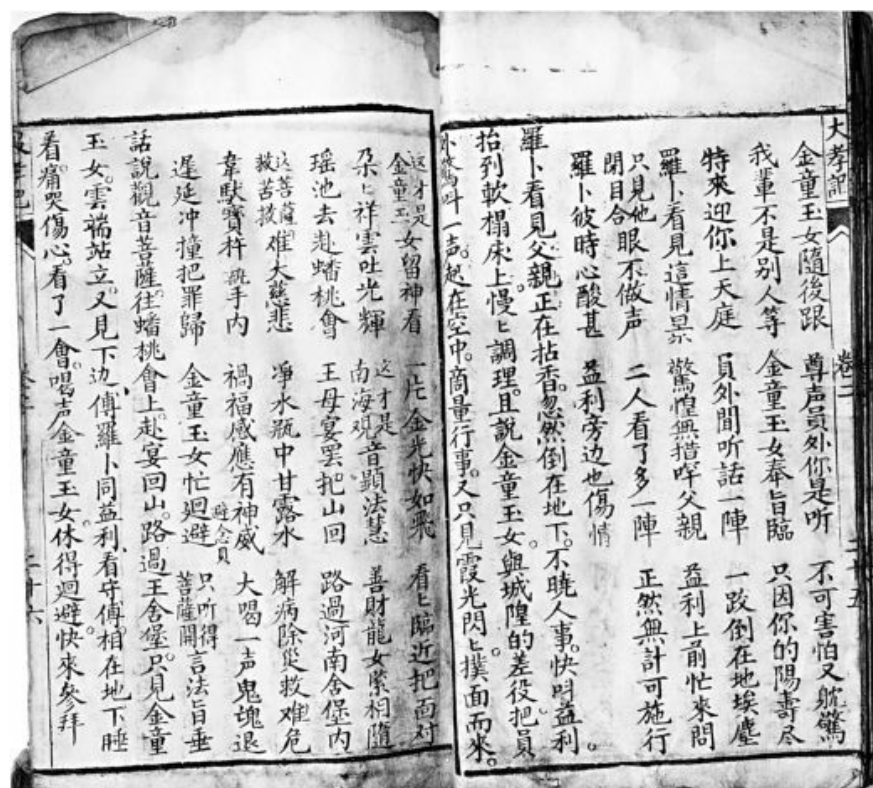 大孝記
卷二
二十五
金童玉女隨後跟 尊声員外你是听 不可害怕又躭驚
我輩不是别人等 金童玉女奉旨臨 只因你的陽壽尽
特來迎你上天庭 員外聞听話一陣 一跤倒在地埃塵
羅卜看見這情景 驚惶無措哭父親 益利上前忙來問
只見他閉目合眼不做声 二人看了多一陣 正然無計可施行
羅卜彼時心酸甚 益利旁边也傷情
羅卜看見父親正在拈香。忽然倒在地下。不曉人事。快呌益利。
抬到軟榻床上慢〻調理。且説金童玉女。與城隍的差役。把員
外驚呌一声。起在空中。商量行事。又只見霞光閃〻撲面而來。
這才是金童玉女留神看 一片金光快如飛 看〻臨近把面对
朶〻祥雲吐光輝 這才是南海观音顯法慧 善財龍女緊相隨
瑶池去赴蟠桃會 王母宴罢把山回 路過河南舍堡內
這菩薩救苦救難大慈悲 凈水瓶中甘露水 解病除災救難危
韋馱寳杵執手内 禍福感應有神威 大喝一声鬼魂退
遲延冲撞把罪歸 金童玉女忙迴避 只听得菩薩開言法旨垂
話説觀音菩薩。往蟠桃會上。赴宴回山。路過王舍堡。只見金童
玉女。雲端站立。又見下边傅羅卜同益利。看守傅相在地下睡
着。痛哭傷心。看了一會。喝声金童玉女。休得迴避。快來參拜
二十六